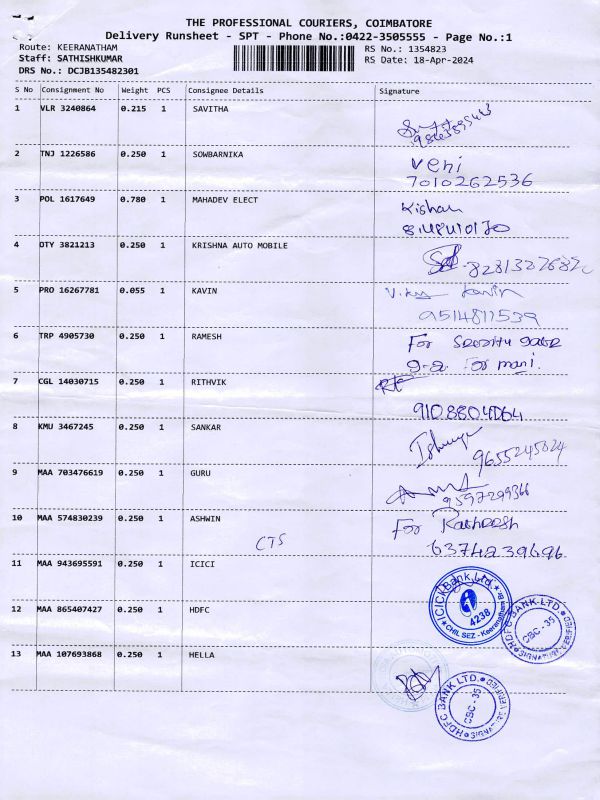 THE PROFESSIONAL COURIERS, COIMBATORE
Delivery Runsheet - SPT - Phone No.:0422-3505555 - Page No.:1
Route: KEERANATHAM RS No.: 1354823
Staff: SATHISHKUMAR RS Date: 18-Apr-2024
DRS No.: DCJB135482301
S No Consignment No Weight PCS Consignee Details Signature
1 VLR 3240864 0.215 1 SAVITHA
2 TNJ 1226586 0.250 1 SOWBARNIKA Veni
7010262536
3 POL 1617649 0.780 1 MAHADEV ELECT Kishan
4 OTY 3821213 0.250 1 KRISHNA AUTO MOBILE
5 PRO 16267781 0.055 1 KAVIN Kavin
9514811539
6 TRP 4905730 0.250 1 RAMESH For
For mani.
7 CGL 14030715 0.250 1 RITHVIK
9108804064
8 KMU 3467245 0.250 1 SANKAR
9655245024
9 MAA 703476619 0.250 1 GURU
9597299366
10 MAA 574830239 0.250 1 ASHWIN For Ratheesh
CTS 6374239696
11 MAA 943695591 0.250 1 ICICI
ICICI Bank Ltd.
4238
CHIL SEZ - Keeranatham
12 MAA 865407427 0.250 1 HDFC
HDFC BANK LTD.
CBC - 35
SIGNATURE VERIFIED
13 MAA 107693868 0.250 1 HELLA
HDFC BANK LTD.
CBC - 35
SIGNATURE VERIFIED